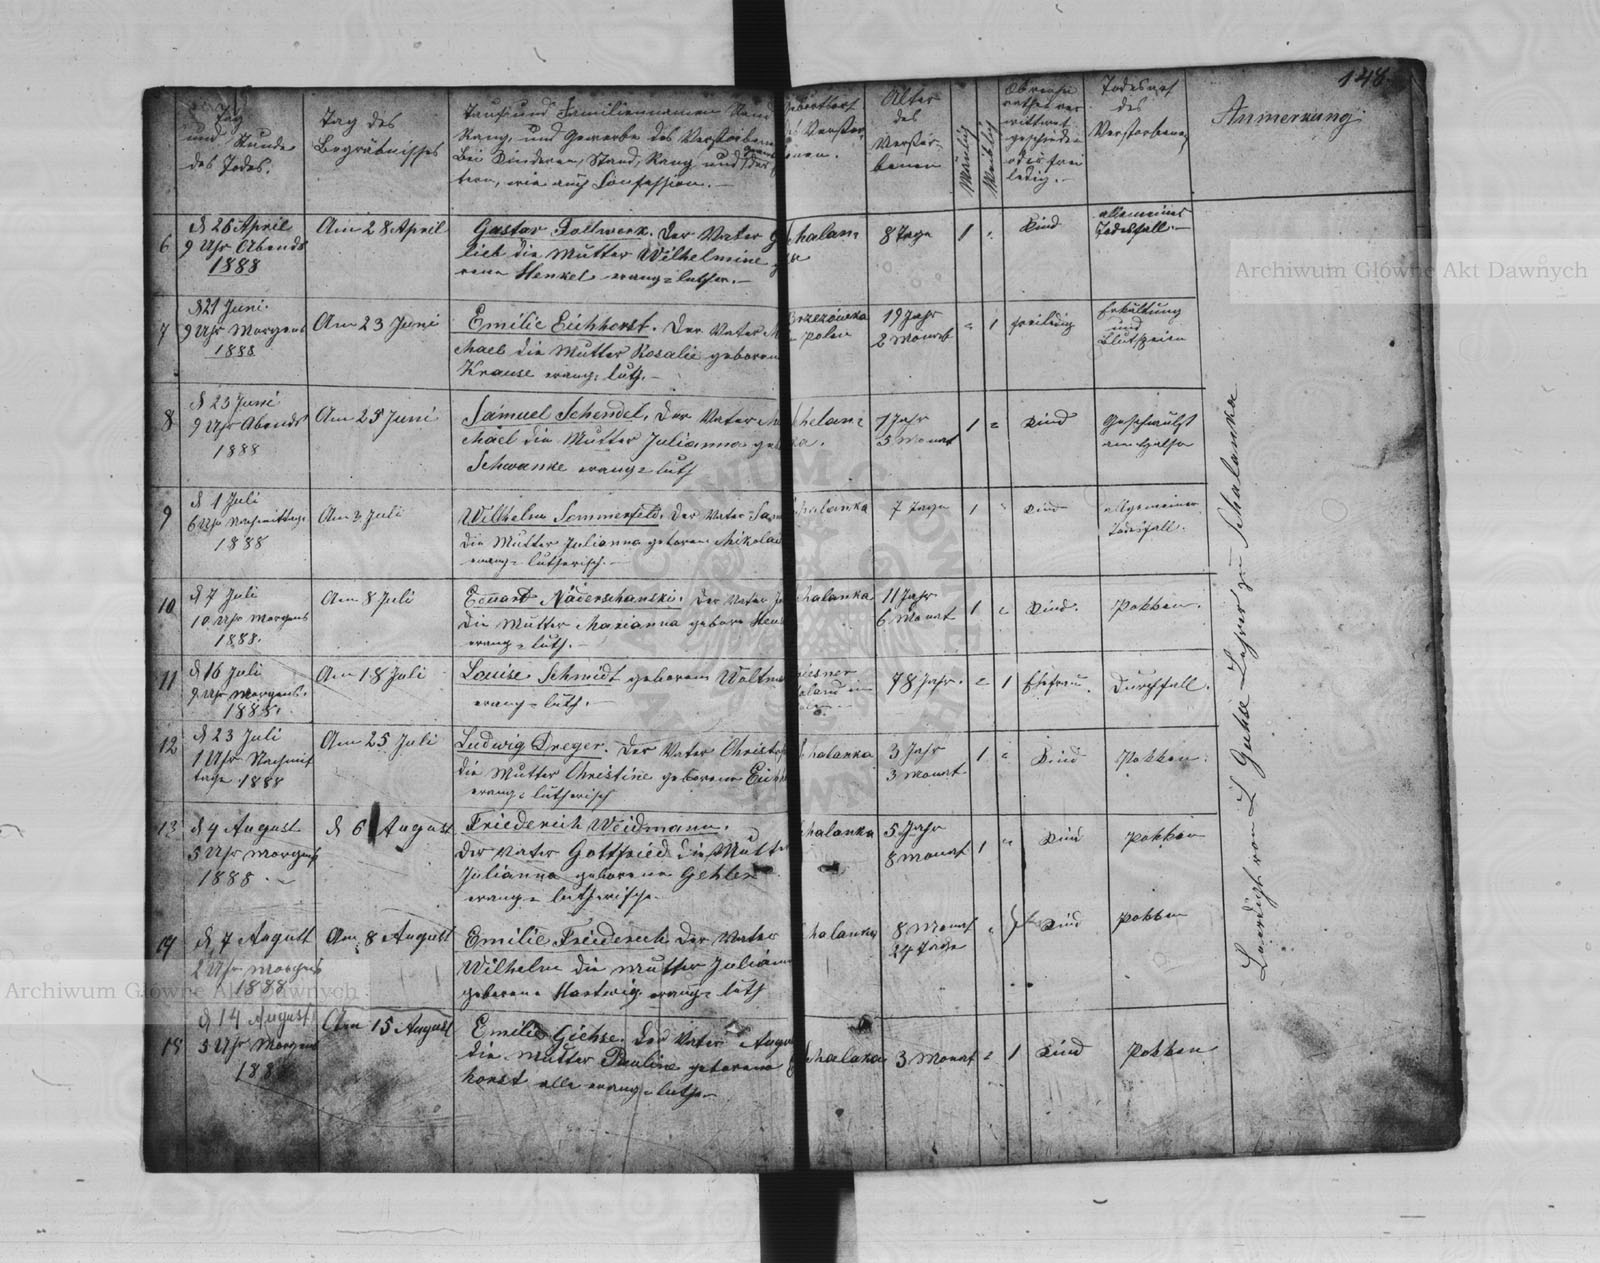 148.
Tag
und Stunde
des Todes.
Tag des
Begräbnisses
Tauf und Familiennamen Stand
Rang, und Gewerbe des Verstorbenen
Bei Kinderen, Stand, Rang und
tern, wie auch Confession. —
Geburtsort
des Verstor-
benen.
Alter
des
Verstor-
benen
Mänlig
Weiblig
Ob verhei
rathet ver
wittwet
geschieden
oder frei
ledig. —
Todesart
des
Verstorbenen
Anmerkung
6
d 26 April
9 Uhr Abends
1888
Am 28 April
Gustav Follmerx. Der Vater G
lieb die Mutter Wilhelmine g
rene Henkel evang = luther. —
Schalan
ka
8 Tage
1
"
Kind
allemeines
Todesfall. —
7
d 21 Juni
9 Uhr Morgens
1888
Am 23 Juni
Emilie Eichhorst. Der Vater Mi
chael die Mutter Rosalie geboren
Krause evang = luth. —
Brzezówka
in polen
19 Jahr
2 Monat
"
1
freiledig
Erkältung
und
Blutspeien
8
d 23 Juni
9 Uhr Abends
1888
Am 25 Juni
Samuel Schendel, Der Vater Mi
chael die Mutter Julianna geb
Schwanke evang = luth
Schelan
ka.
1 Jahr
5 Monat
1
"
Kind
Geschwulst
am Halse
9
d 1 Juli
6 Uhr Nachmittag
1888
Am 3 Juli
Wilhelm Sommerfeld. Der Vater Sam
die Mutter Julianna geboren Mikolai
evang = lutherisch. —
Schalanka
7 Tage
1
"
Kind
allgemeiner
Todesfall.
10
d 7 Juli
10 Uhr Morgens
1888.
Am 8 Juli
Eduard Naderschanski. Der Vater
die Mutter Marianna gebore
evang = luth. —
Schalanka
11 Jahr
6 Monat
1
"
Kind.
Pokken.
11
d 16 Juli
9 Uhr Morgens.
1888.
Am 18 Juli
Louise Schmidt geboren Woltm
evang = luth. —
78 Jahr.
"
1
Ehefrau.
Durchfall.
12
d 23 Juli
1 Uhr Nachmit
tage 1888
Am 25 Juli
Ludwig Dreger. Der Vater Christof
die Mutter Christine geborene Eich
evang = lutherisch
Schalanka
3 Jahr
3 Monat
1
"
Kind
Pokken.
13
d 4 August
5 Uhr Morgens
1888. —
d 6 August
Friederich Weidmann.
Der Vater Gottfried die Mutte
Julianna geborene Gehler
evang = lutherisch. —
Schalanka
5 Jahr
8 Monat
1
"
Kind
Pokken
14
d 7 August
2 Uhr Morgens
1888
Am 8 August
Emilie Friederich Der Vater
Wilhelm die Mutter Juliann
geborene Hartwig. evang = luth
Schalanka
8 Monat
24 Tage
"
1
Kind
Pokken
15
d 14 August
5 Uhr Morgens
188
Am 15 August
Emilie Giehse. Der Vater Augu
die Mutter Pauline geborene
horst alle evang = luth. —
Schalanka
3 Monat
"
1
Kind
Pokken
von L Giehse Lehrer zu Schalanka
Archiwum Główne Akt Dawnych
Archiwum Główne Akt Dawnych